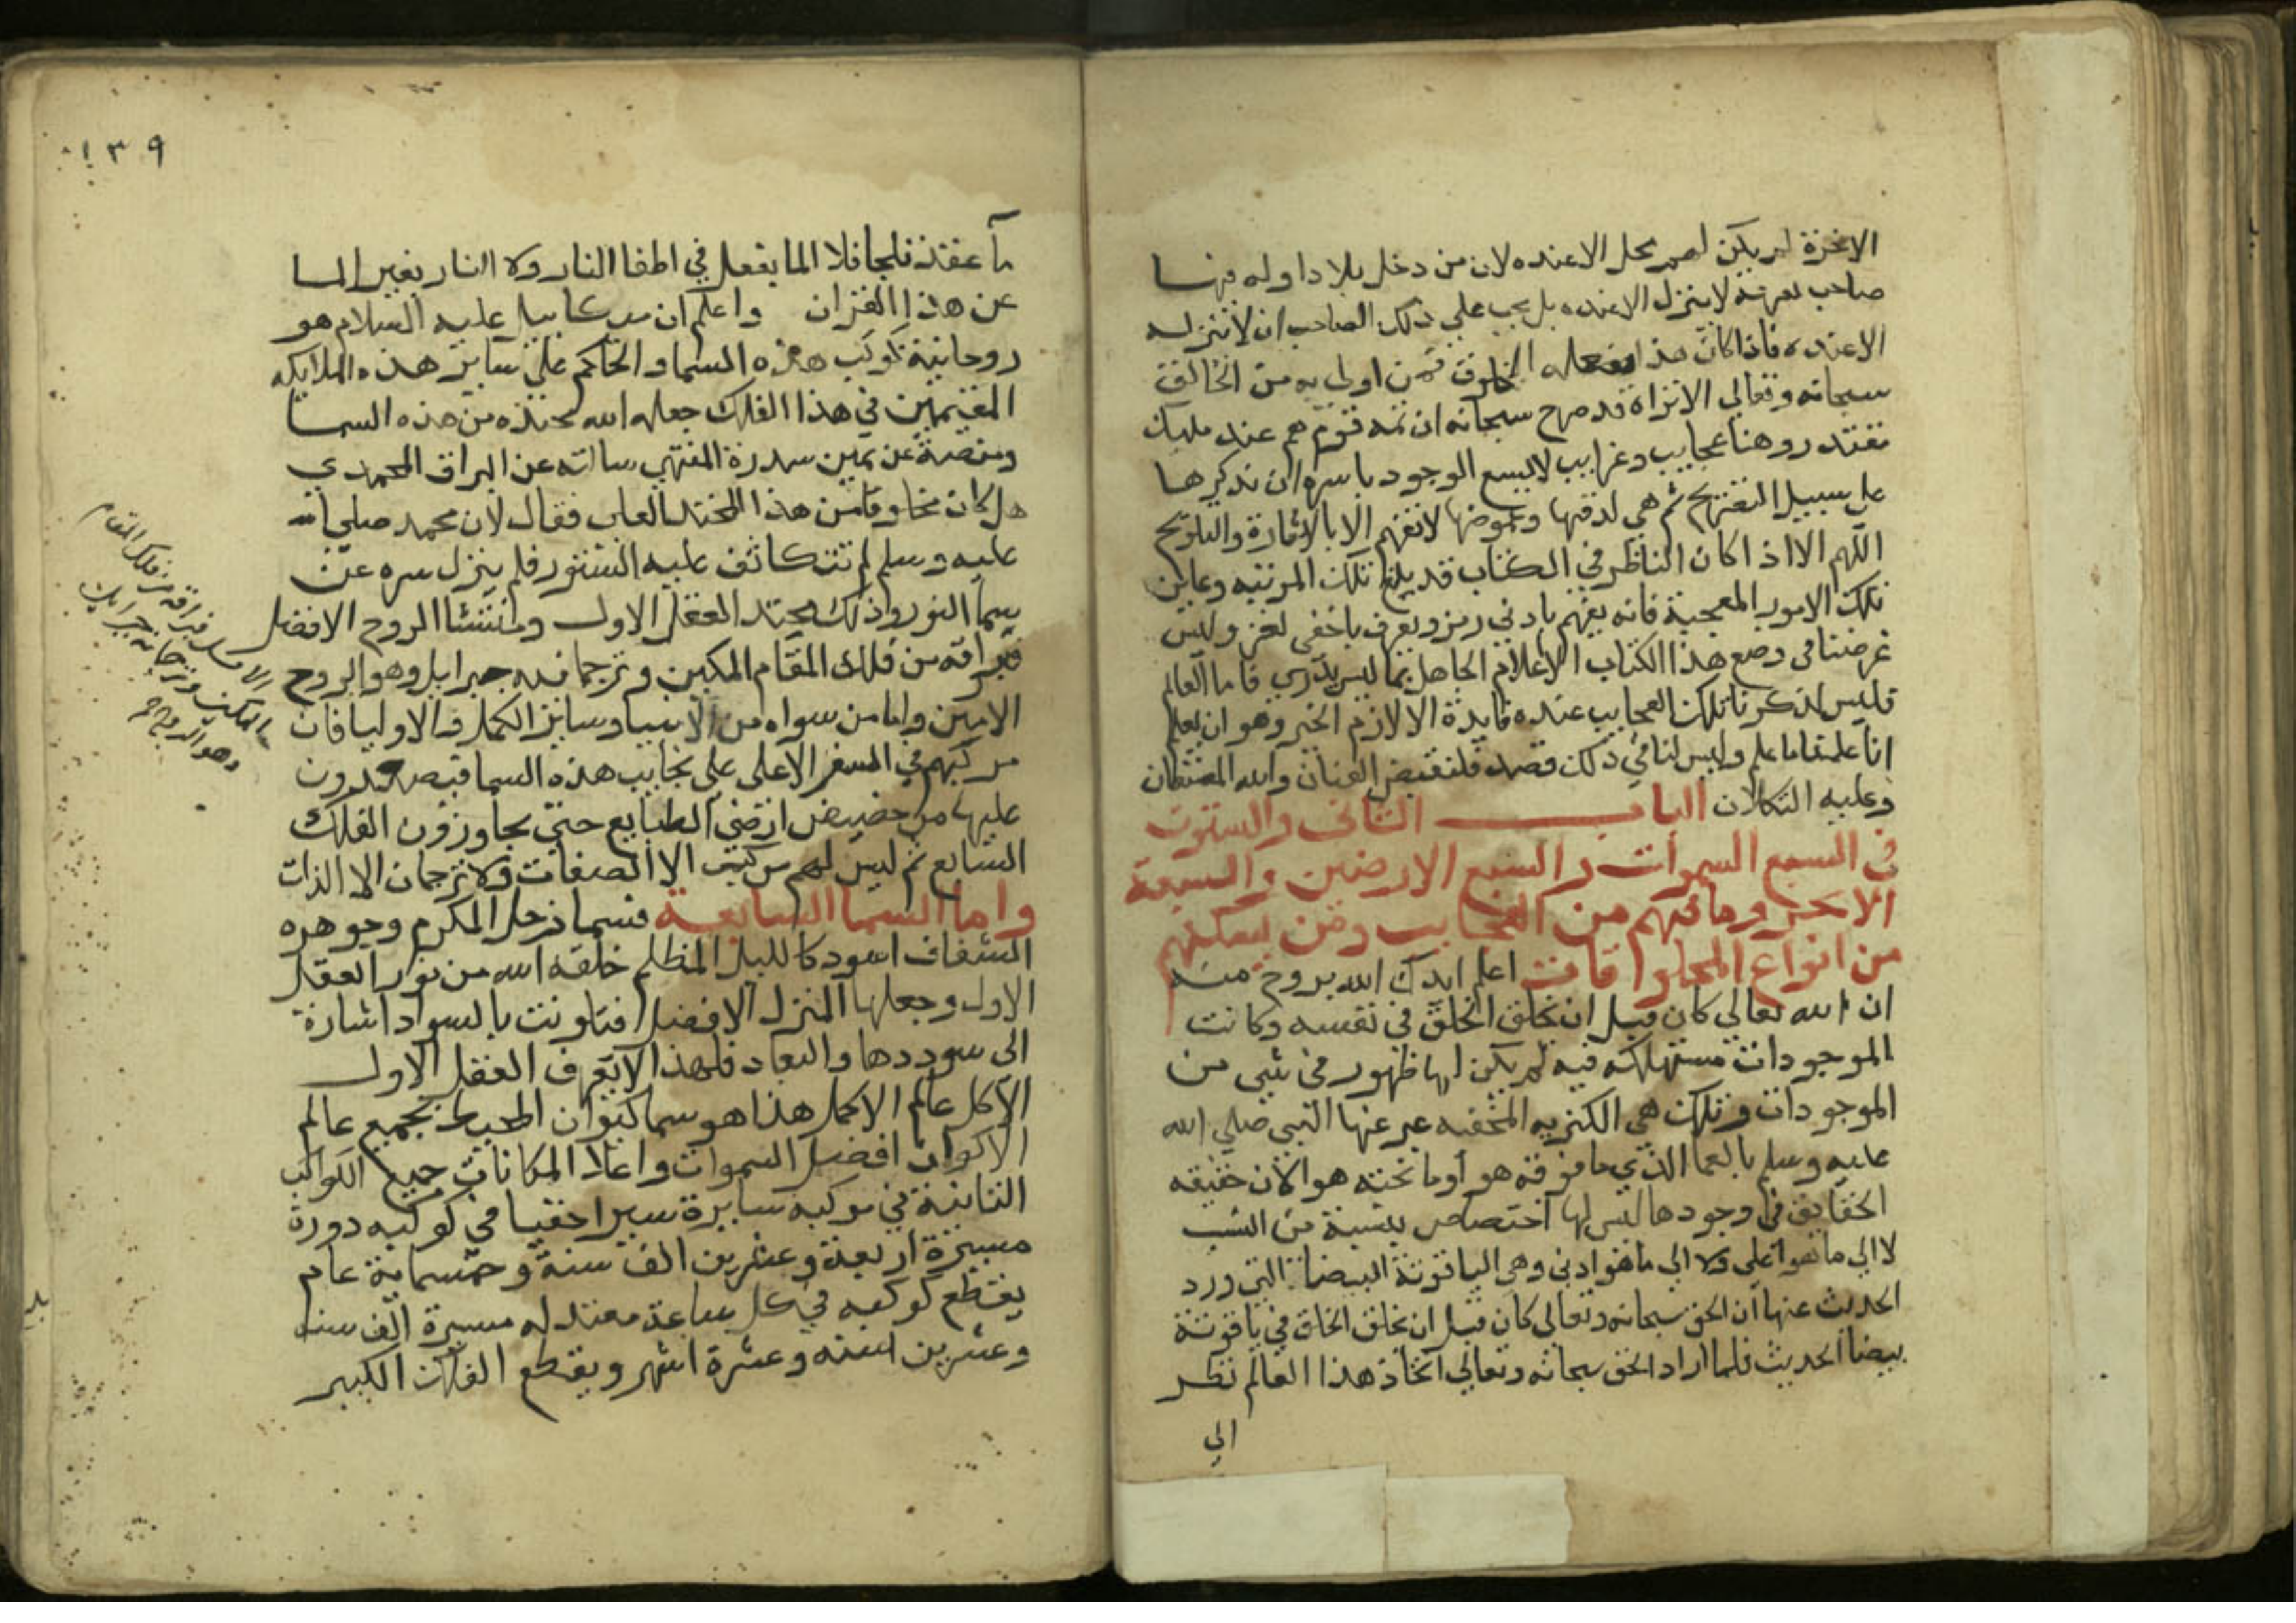 الاخرة لم يكن لهم محل الا عنده لان من دخل بلادا وله فيها
صاحب يعرفه لا ينزل الا عنده بل يجب على ذلك الصاحب ان لا ينزله
الا عنده فاذا كان هذا يفعله المخلوق فمن اولى به من الخالق
سبحانه وتعالى الا تراه قد صرح سبحانه ان ثمه قوم هم عند مليك
مقتدر وهنا عجايب وغرايب لا يسع الوجود باسره ان نذكرها
على سبيل التصريح ثم هي لدقتها وغموضها لا تفهم الا بالاشارة والتلويح
اللهم الا اذا كان الناظر في الكتاب قد بلغ تلك المرتبه وعاين
تلك الامور المعجبة فانه يفهم بادنى رمز ويعرف باخفى لغز وليس
غرضنا في وضع هذا الكتاب الا اعلام الجاهل بما ليس يدري فاما العالم
فليس لذكرنا تلك العجايب عنده فايدة الا لازم الخبر وهو ان يعلم
انا علمنا ما علم وليس لنا في ذلك قصد فلنقبض العنان والله المستعان
وعليه التكلان الباب الثاني والستون
في السبع السموات والسبع الارضين والسبعة
الابحر وما فيهم من العجايب ومن يسكنهم
من انواع المخلوقات اعلم ايدك الله بروح منه
ان الله تعالى كان قبل ان يخلق الخلق في نفسه وكانت
الموجودات مستهلكه فيه لم يكن لها ظهور في شي من
الموجودات وتلك هي الكنزيه المخفيه عبر عنها النبي صلى الله
عليه وسلم بالعما الذي ما فوقه هوا وما تحته هوا لان حقيقه
الحقايق في وجودها ليس لها اختصاص بنسبة من النسب
لا الى ما هو اعلى ولا الى ما هو ادنى وهي الياقوتة البيضا التي ورد
الحديث عنها ان الحق سبحانه وتعالى كان قبل ان يخلق الخلق في ياقوتة
بيضا الحديث فلما اراد الحق سبحانه وتعالى اتخاذ هذا العالم نظر
الى
١٣٩
ما عقد ثلجا فلا الما يفعل في اطفا النار ولا النار بغير الما
عن هذا القران واعلم ان ميكاييل عليه السلام هو
روحانية كوكب هذه السما والحاكم على ساير هذه الملايكه
المقيمين في هذا الفلك جعل الله محتده من هذه السما
ومنصة عن يمين سدرة المنتهى سالته عن البراق المحمدي
هل كان مخلوقا من هذا المحتد العلي فقال لان محمد صلى الله
عليه وسلم لم تتكاثف عليه الستور فلم ينزل سره عن
سما النور وذلك محتد العقل الاول ومنشا الروح الافضل
فبراقه من فلك المقام المكين وترجمانه جبرايل وهو الروح
الامين واما من سواه من الانبيا وساير الكمل والاوليا فان
مركبهم في السفر الاعلى على نجايب هذه السما فيصعدون
عليها من حضيض ارضي الطبايع حتى يجاوزون الفلك
السابع ثم ليس لهم مركب الا الصفات ولا ترجمان الا الذات
واما السما السابعة فسما زحل المكرم وجوهره
الشفاف اسود كالليل المظلم خلقه الله من نور العقل
الاول وجعلها المنزل الافضل فتلونت بالسواد اشارة
الى سوددها والبعاد فلهذا لا يعرف العقل الاول
الا كل عالم الاكمل هذا هو سما كيوان المحيط بجميع عالم
الاكوان افضل السموات واعلا المكانات جميع الكواكب
الثابتة في موكبه سايرة سيرا خفيا في كوكبه دورة
مسيرة اربعة وعشرين الف سنة وخمسماية عام
يقطع كوكبه في كل ساعة معتدله مسيرة الف سنه
وعشرين سنه وعشرة اشهر ويقطع الفلك الكبير
الافضل فبراقه من فلك المقام
المكين وترجمانه جبرايل
وهو الروح